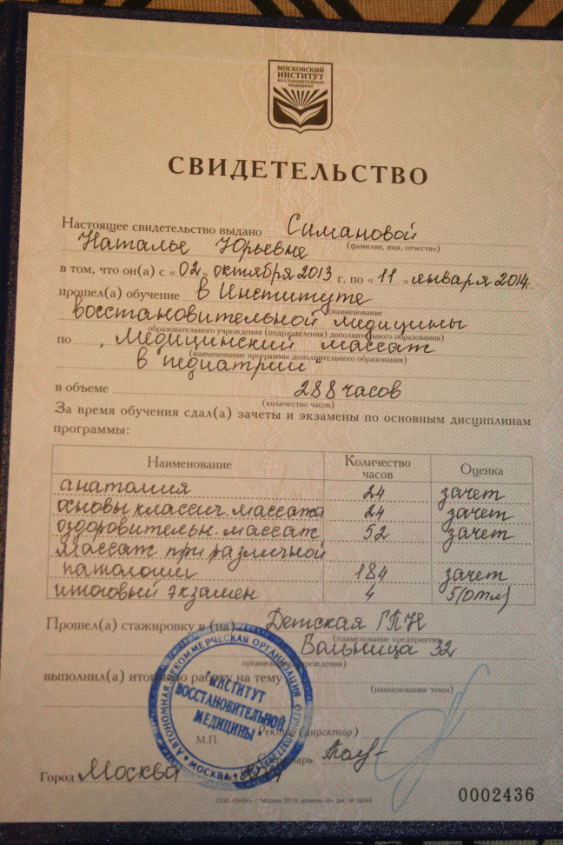 МОСКОВСКИЙ
ИНСТИТУТ
ВОССТАНОВИТЕЛЬНОЙ
МЕДИЦИНЫ
СВИДЕТЕЛЬСТВО
Настоящее свидетельство выдано Симановой
(фамилия, имя, отчество)
Наталье Юрьевне
в том, что он(а) с «02» октября 2013 г. по «11» января 2014.
прошел(а) обучение в Институте
(наименование
восстановительной медицины
образовательного учреждения (подразделения) дополнительного образования)
по „Медицинский массаж
(наименование программы дополнительного образования)
в педиатрии“
в объеме 288 часов
(количество часов)
За время обучения сдал(а) зачеты и экзамены по основным дисциплинам
программы:
Наименование Количество часов Оценка
анатомия 24 зачет
основы классич. массажа 24 зачет
оздоровительн. массаж 52 зачет
массаж при различной
патологии 184 зачет
итоговый экзамен 4 5(отл)
Прошел(а) стажировку в (на) Детская ГПК
(наименование предприятия,
Больница 32
организации, учреждения)
выполнил(а) итоговую работу на тему
(наименование темы)
АВТОНОМНАЯ НЕКОММЕРЧЕСКАЯ ОРГАНИЗАЦИЯ
ИНСТИТУТ
ВОССТАНОВИТЕЛЬНОЙ
МЕДИЦИНЫ
МОСКВА
Ректор (директор)
М.П.
Секретарь
Город Москва
0002436